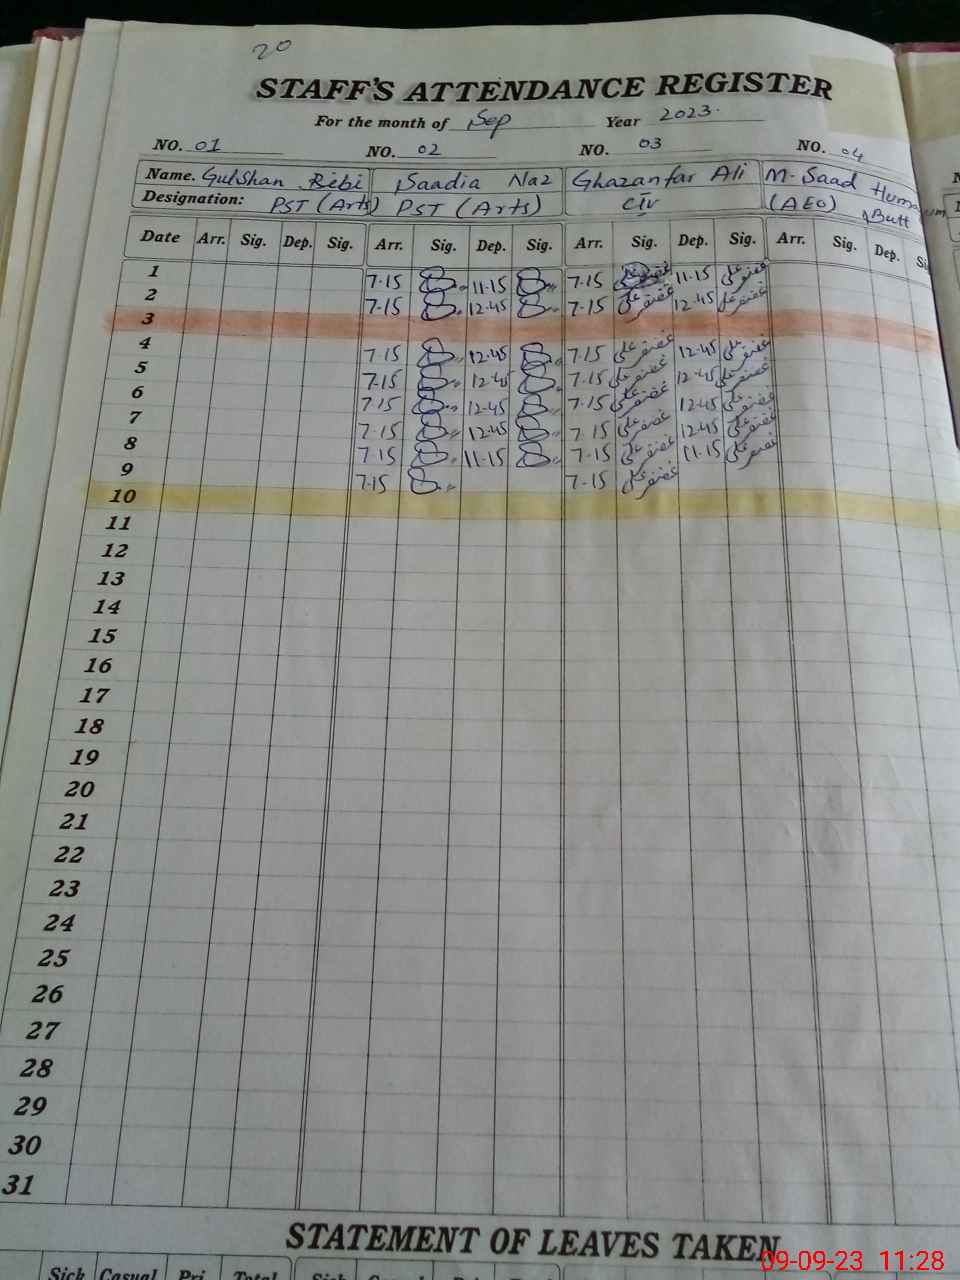 20
STAFF'S ATTENDANCE REGISTER
For the month of Sep Year 2023.
NO. 01 NO. 02 NO. 03 NO. 04
Name. Gulshan Bibi Saadia Naz Ghazanfar Ali M. Saad Humayum Butt
Designation: PST (Arts) PST (Arts) CIV (AEO)
Date Arr. Sig. Dep. Sig. Arr. Sig. Dep. Sig. Arr. Sig. Dep. Sig. Arr. Sig. Dep.
1 7.15 11.15 7.15 غضنفر علی 11.15 غضنفر علی
2 7.15 12.45 7.15 غضنفر علی 12.45 غضنفر علی
3
4 7.15 12.45 7.15 غضنفر علی 12.45 غضنفر علی
5 7.15 12.45 7.15 غضنفر علی 12.45 غضنفر علی
6 7.15 12.45 7.15 غضنفر علی 12.45 غضنفر علی
7 7.15 12.45 7.15 غضنفر علی 12.45 غضنفر علی
8 7.15 11.15 7.15 غضنفر علی 11.15 غضنفر علی
9 7.15 7.15 غضنفر علی
10
11
12
13
14
15
16
17
18
19
20
21
22
23
24
25
26
27
28
29
30
31
STATEMENT OF LEAVES TAKEN
Sick Casual Pri. Total Sick
09-09-23 11:28